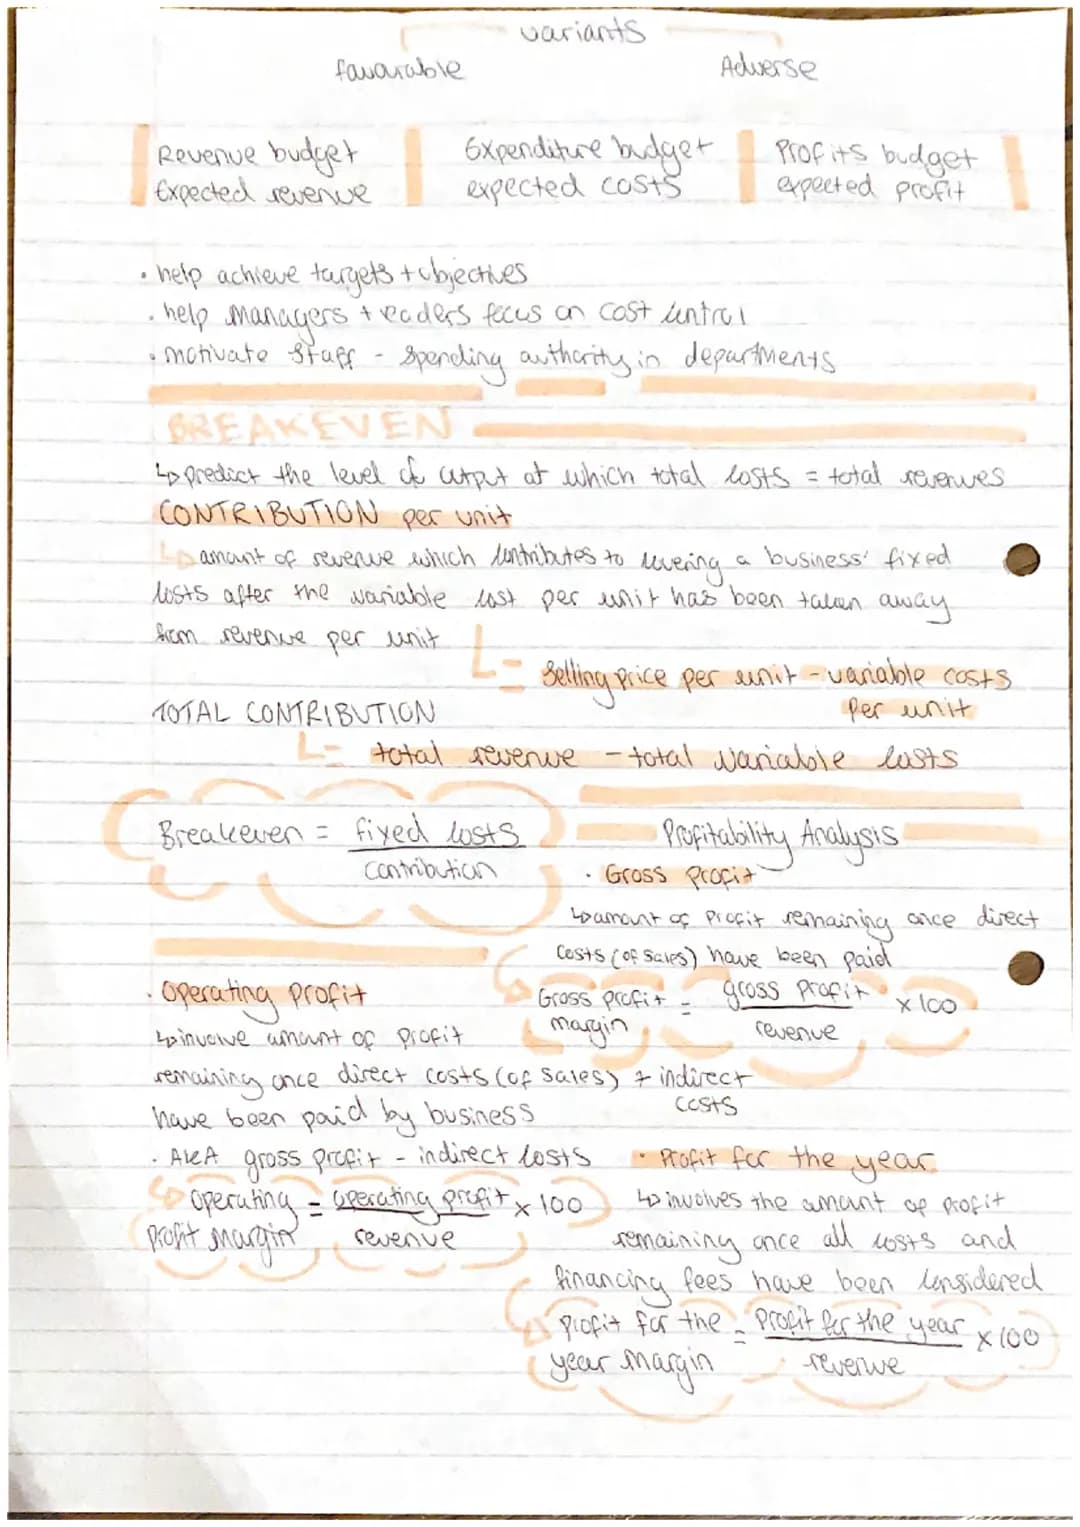 variants
favourable Adverse
Revenue budget
Expected revenue
Expenditure budget
expected costs
Profits budget
expected profit
• help achieve targets + objectives
• help managers + leaders focus on cost control
• motivate staff - spending authority in departments
BREAKEVEN
↳ predict the level of output at which total costs = total revenues
CONTRIBUTION per unit
↳ amount of revenue which contributes to covering a business' fixed
costs after the variable cost per unit has been taken away
from revenue per unit
L= Selling price per unit - variable costs
per unit
TOTAL CONTRIBUTION
L= total revenue - total variable costs
Breakeven = fixed costs
contribution
Profitability Analysis
• Gross Profit
↳ amount of profit remaining once direct
costs (of sales) have been paid
Gross profit = gross profit x 100
margin revenue
• Operating profit
↳ involve amount of profit
remaining once direct costs (of sales) + indirect
costs
have been paid by business
• AKA gross profit - indirect costs
↳ Operating = operating profit x 100
profit margin revenue
• Profit for the year
↳ involves the amount of profit
remaining once all costs and
financing fees have been considered
↳ profit for the = Profit for the year x 100
year margin revenue